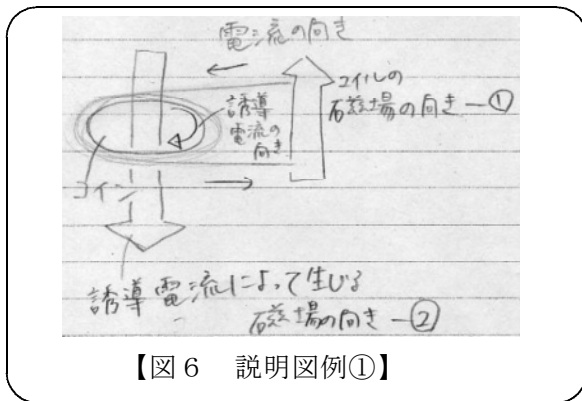 電流の向き
コイルの
磁場の向き ー①
誘導
電流の
向き
コイン
誘導電流によって生じる
磁場の向き ー②
【図6 説明図例①】